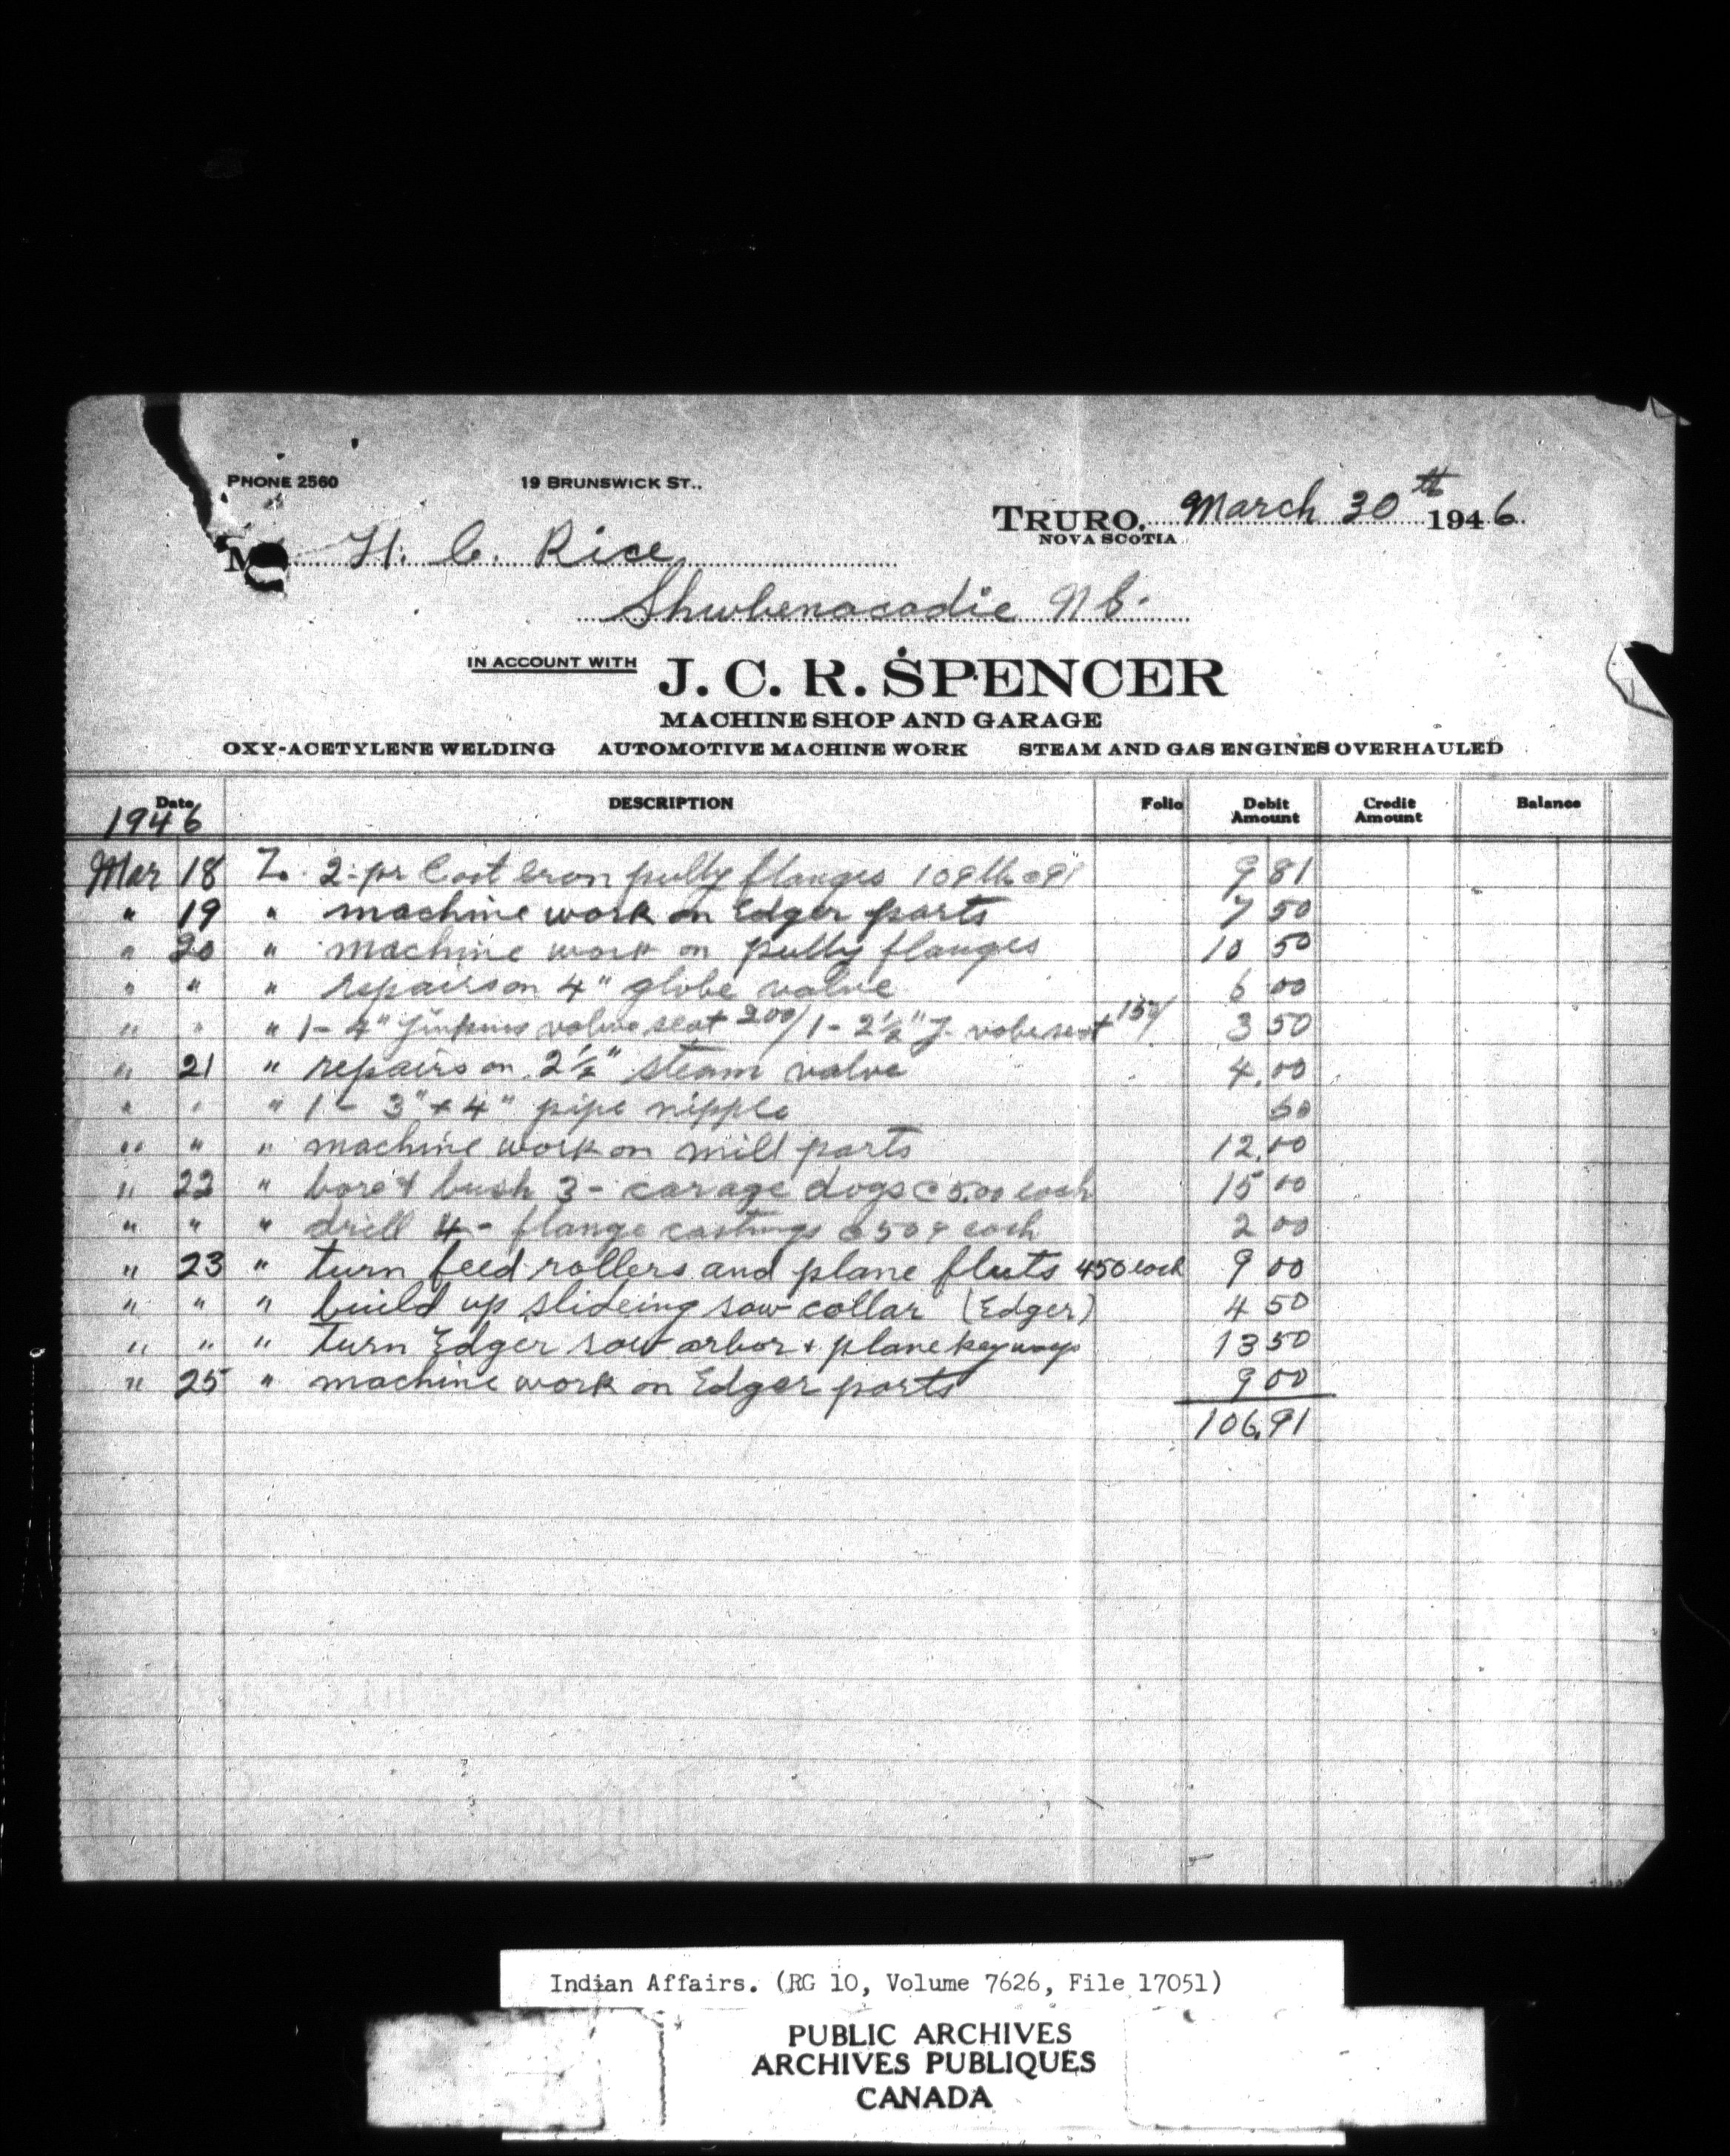 PHONE 2560 19 BRUNSWICK ST..
TRURO, March 30th 1946
NOVA SCOTIA
M H. C. Rice
Shubenacadie N.S.
IN ACCOUNT WITH J. C. R. SPENCER
MACHINE SHOP AND GARAGE
OXY-ACETYLENE WELDING AUTOMOTIVE MACHINE WORK STEAM AND GAS ENGINES OVERHAULED
Date DESCRIPTION Folio Debit Amount Credit Amount Balance
1946
Mar 18 To 2-pr Cast Iron pully flanges 109 lb @ 9¢ 9 81
" 19 " machine work on Edger parts 7 50
" 20 " machine work on pully flanges 10 50
" " " repairs on 4" globe valve 6 00
" " " 1- 4" Jenkins valve seat 200/ 1- 2½" J. valve seat 150/ 3 50
" 21 " repairs on 2½" steam valve 4.00
" " " 1- 3" x 4" pipe nipple 50
" " " machine work on mill parts 12.00
" 22 " bore & bush 3- carage dogs @ 5.00 each 15 00
" " " drill 4- flange castings @ 50¢ each 2 00
" 23 " turn feed rollers and plane fluts 450 each 9 00
" " " build up slideing saw collar (Edger) 4 50
" " " turn Edger saw arbor + plane keyways 13 50
" 25 " machine work on Edger parts 9 00
106.91
Indian Affairs. (RG 10, Volume 7626, File 17051)
PUBLIC ARCHIVES
ARCHIVES PUBLIQUES
CANADA